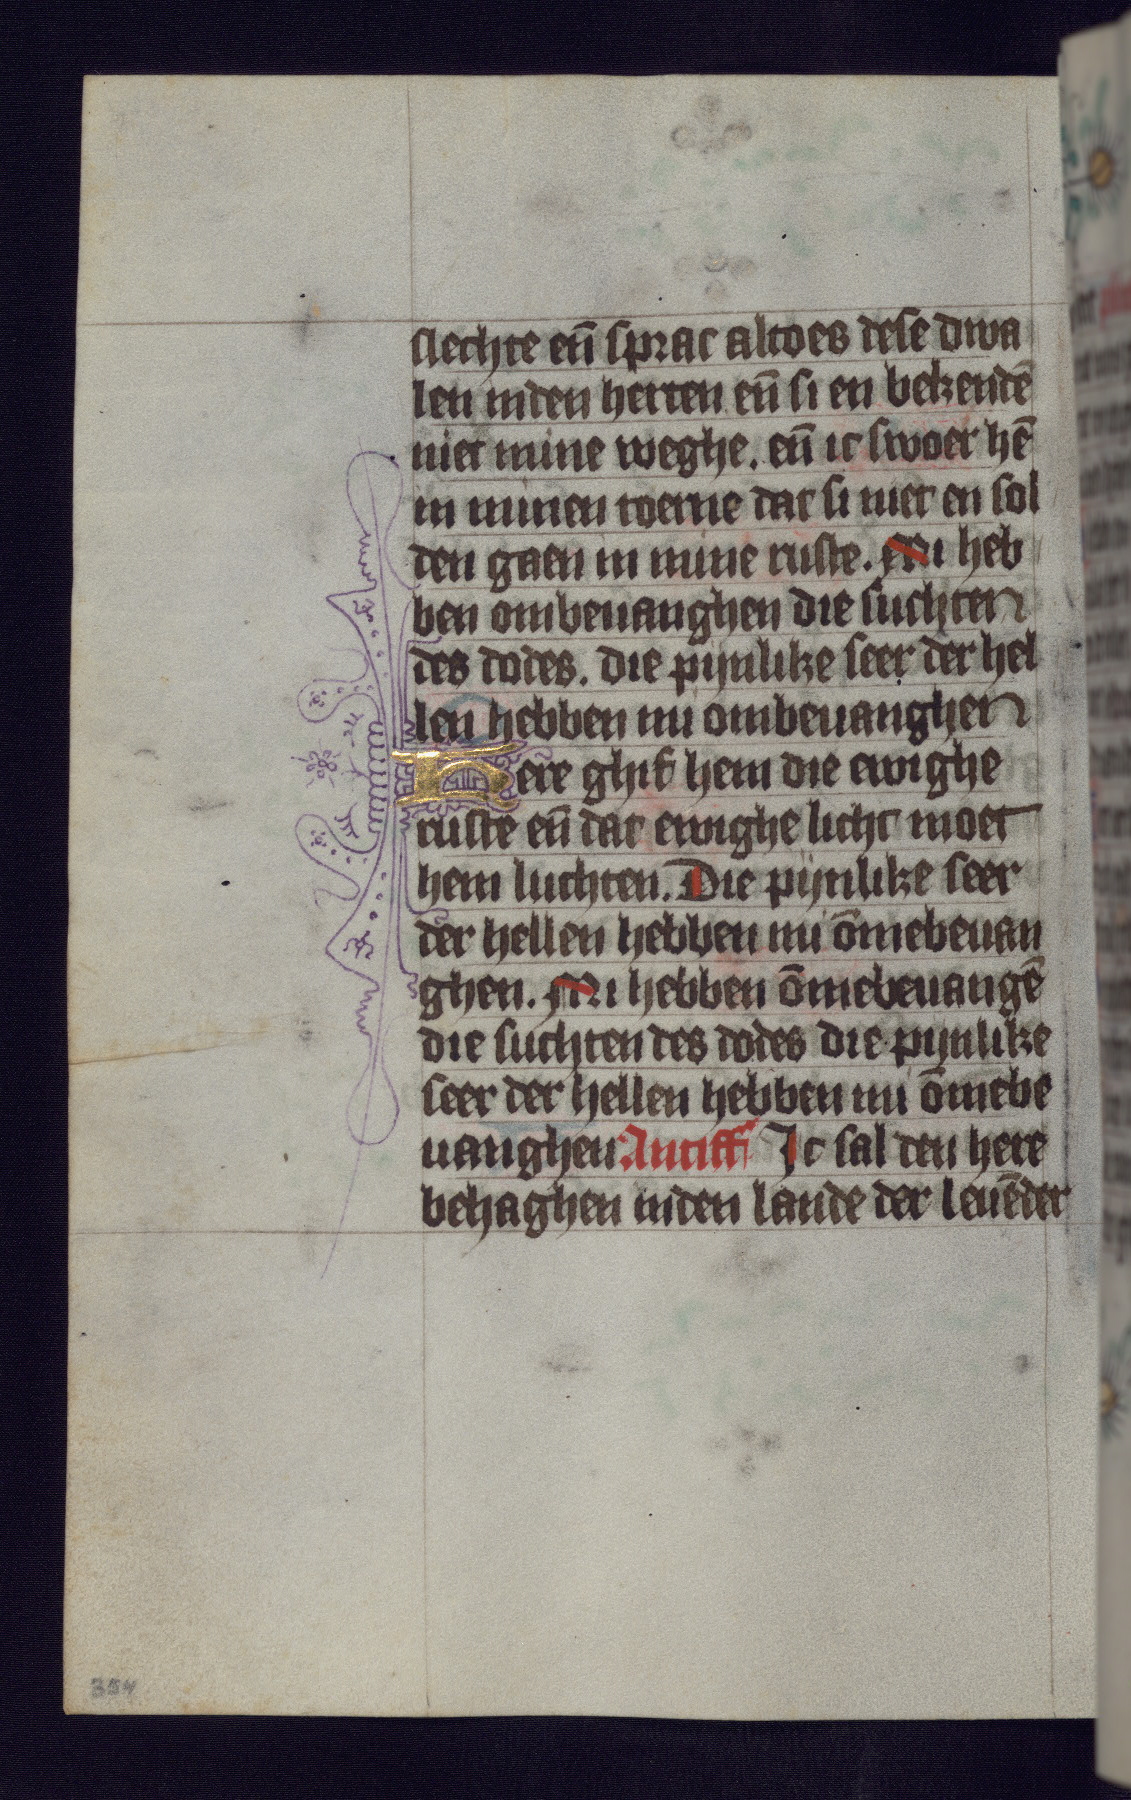 slechte en̄ sprac altoes dese dwa
len inden herten en̄ si en bekendē
niet mine weghe. en̄ ic swoer hē
in minen toerne dat si niet en sol
den gaen in mine ruste. Mi heb
ben ombeuanghen die suchten
des dodes. die pijnlike seer der hel
len hebben mi ombeuanghen
Here ghif hem die ewighe
ruste en̄ dat ewighe licht moet
hem luchten. Die pijnlike seer
der hellen hebben mi ōmebeuan
ghen. Mi hebben ōmebeuangē
die suchten des dodes die pijnlike
seer der hellen hebben mi ōmebe
uanghen Antiff Ic sal den here
behaghen inden lande der leuēder
354